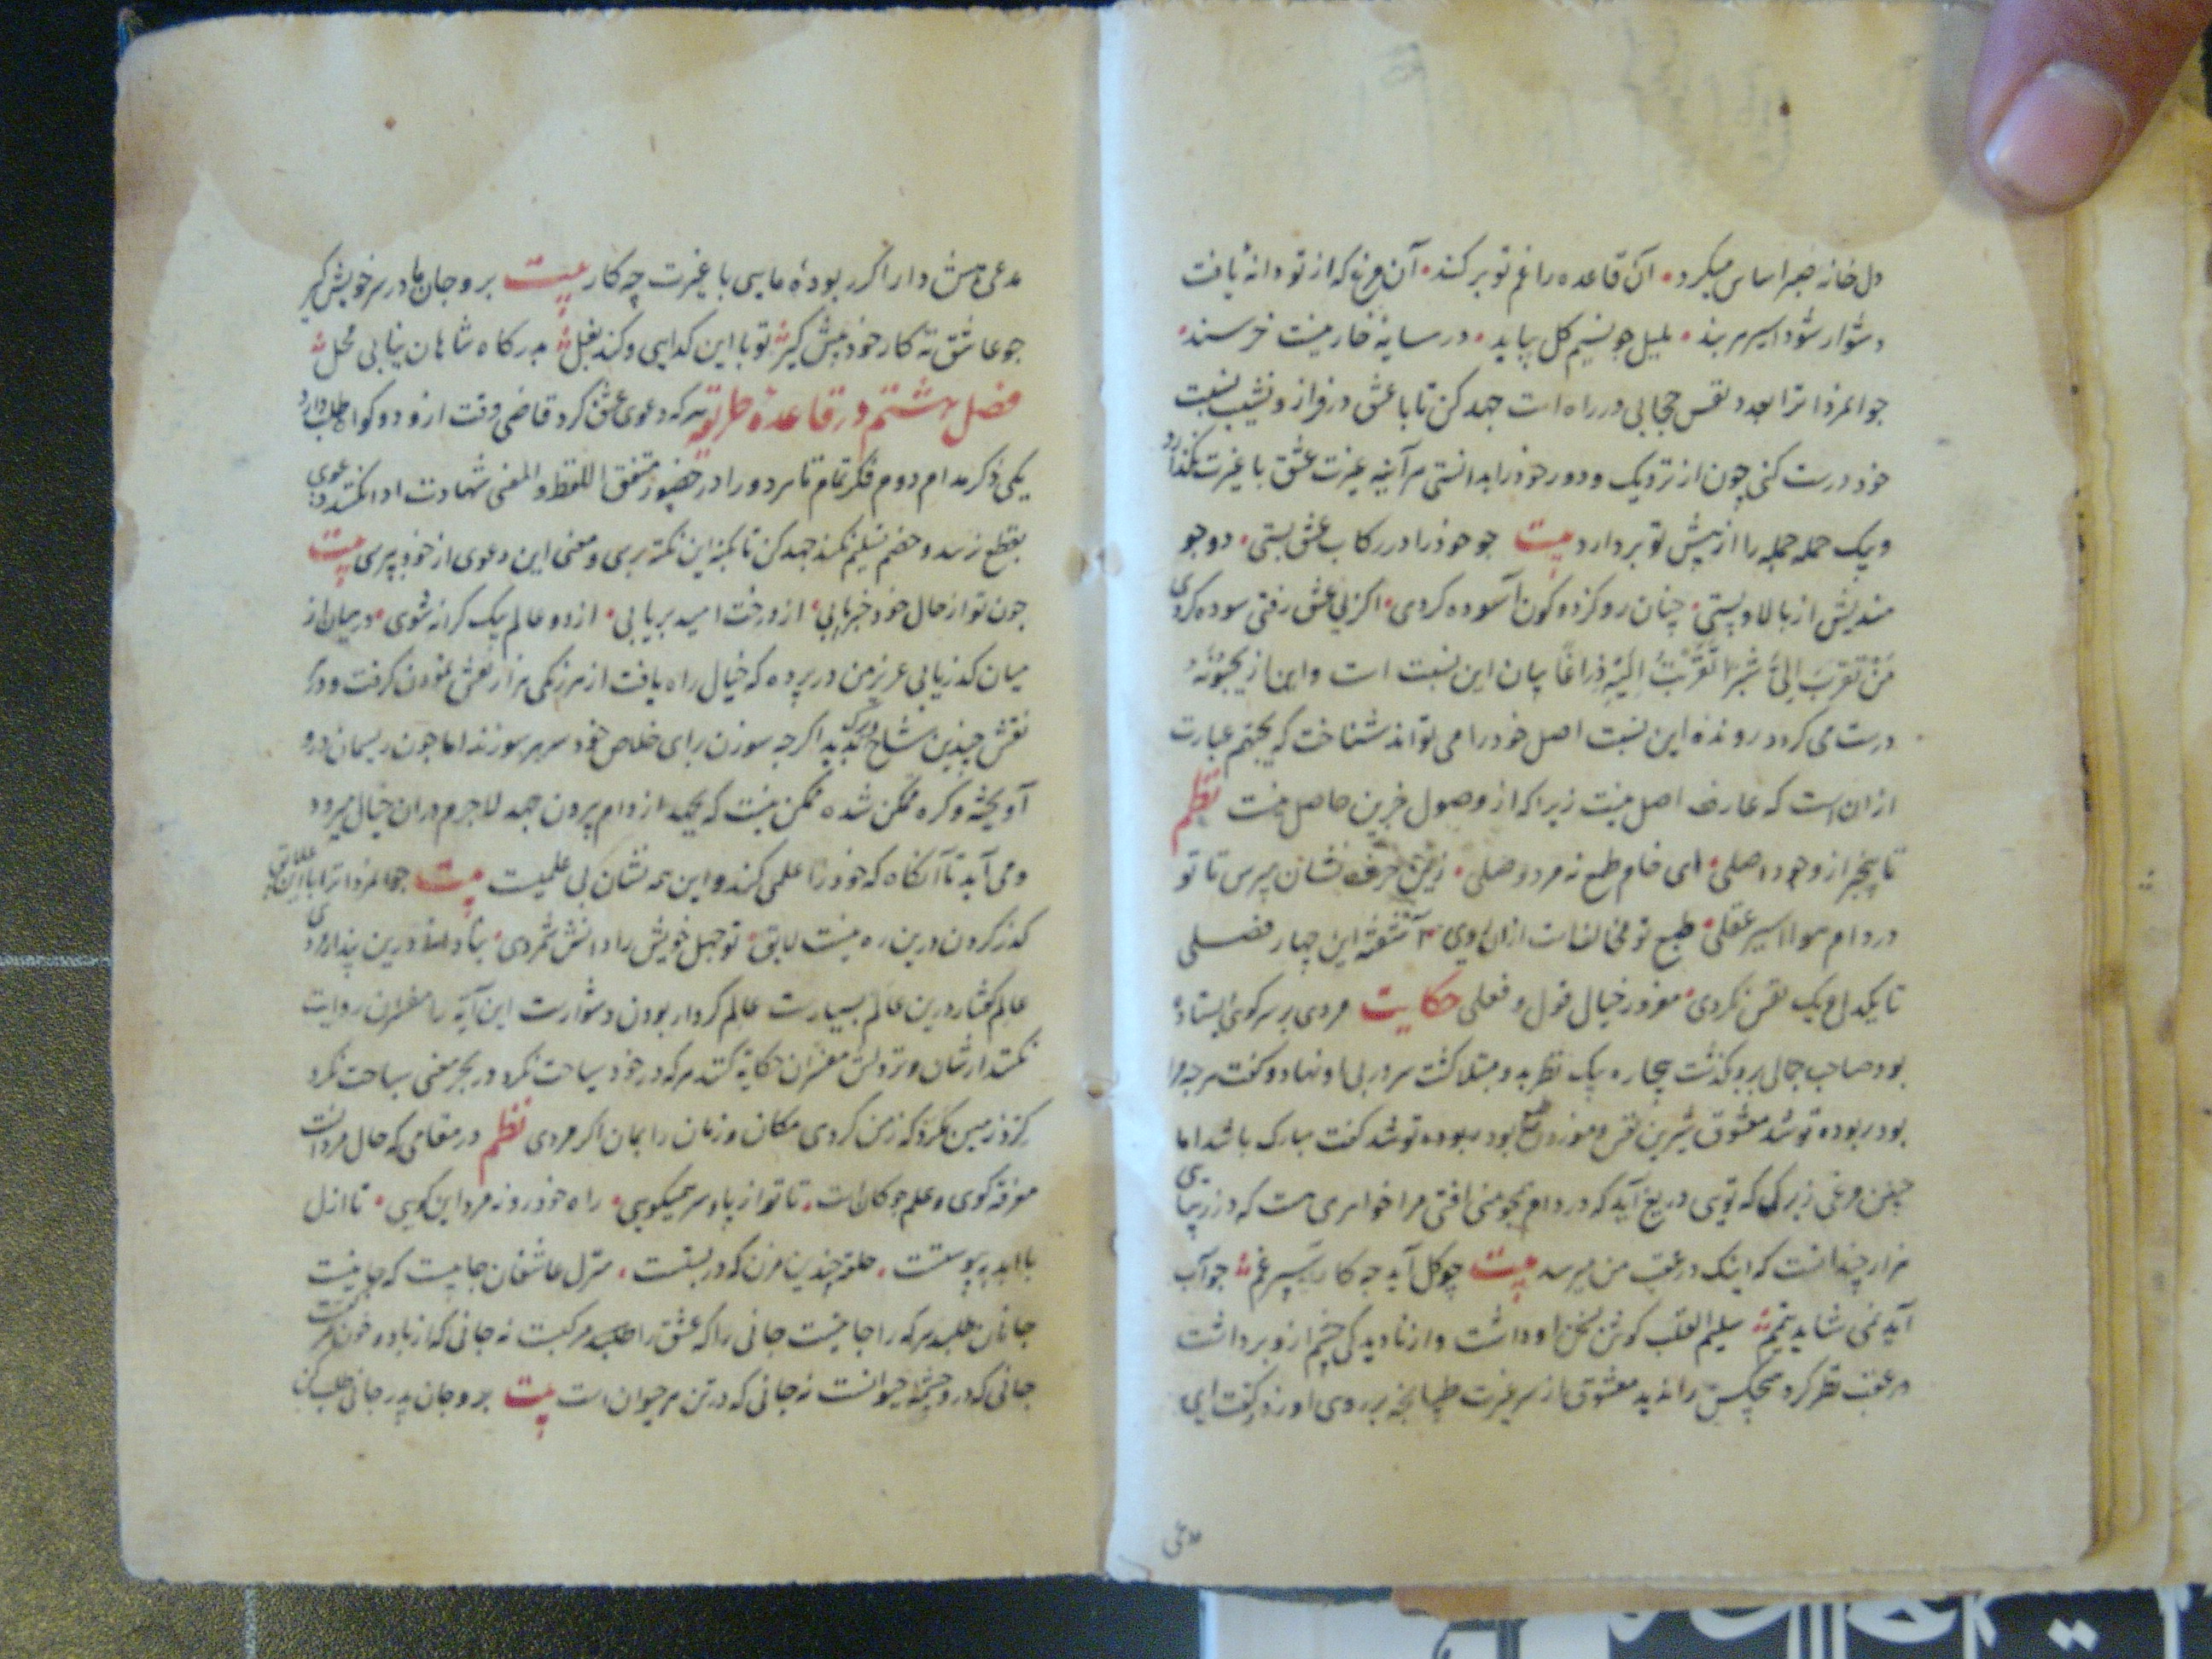 دل خانه صبر اساس میکرد • آن قاعده را غم تو برکند • آن مرغ که از تو دانه یافت
دشوار شود اسیر هر بند • بلبل جو نسیم کل بیابد • در سایهٔ خار نیست خرسند •
جوانمردا ترا بعدد نفس حجابی در راه است جهد کن تا با عشق در فراز و نشیب نسبت
خود درست کنی چون از نزدیک و دور خود را بدانستی هرآینه غیرت عشق با غیرت نکذارد
و بیک حمله جمله را از پیش تو بردارد بیت جو خود را در رکاب عشق بستی • دو جو
مندیش از بالا و پستی • چنان رو کز دو کون آسوده کردی • اکر بی عشق رفتی سوده کردی
مَنْ تَقَرَّبَ اِلَیَّ شِبْرًا تَقَرَّبْتُ اِلَیْهِ ذِرَاعًا بیان این نسبت است و این از یحبونه
درست می کردد رونده این نسبت اصل خود را می تواند شناخت که یحبهم عبارت
از آن است که عارف اصل نیست زیرا که از وصول خبرین حاصل نیست نظم
تا بیخبر از وجود اصلی • ای خام طمع نه مرد وصلی • زین حرف نشان مپرس تا تو
در دام هوا اسیر عقلی • طبع تو مخالفات ازان روی • آشفته این چهار فصلی
تا یکدل و یک نفس نکردی • مغرور خیال قول و فعلی حکایت مردی بر سر کوی ایستاده
بود صاحب جمالی برو بکذشت بیچاره بیک نظر بدو مبتلا کشت سر در پی او نهاد و کفت هر جه مرا
بود ربوده تو شد معشوق شیرین نفس و موزون طبع بود ربوده تو شد کفت مبارک باشد اما
چنین مرغی زیرکی که تویی دریغ آید که در دام همجو منی افتی مرا خواهری هست که در زیبایی
هزار چندانست که اینک در عقب من میرسد بیت چو کل آید چه کار سپرغم • جو آب
آید نمی شاید تیمم • سلیم القلب کوش سخن او داشت و از نادیدکی چشم از و برداشت
در عقب نظر کرد هیچکس را ندید معشوق از سر غیرت طپانچه بر روی او زد و کفت ای
مدعی
مدعی هش دار اکر ربودهٔ مایی با غیرت چه کار بیت برو جان بها در سر خویش کیر
جو عاشق نهٔ کار خود پیش کیر • تو با این کدایی و کند بغل • بدرکاه شاهان نیابی محل •
فصل هشتم در قاعدهٔ طریقه هر که دعوی عشق کرد قاضی وقت ازو دو کواه طلب دارد
یکی ذکر مدام دوم فکر تمام تا هر دو را در حضور متفق اللفظ و المعنی شهادت ادا نکنند دعوی
بقطع نرسد و خصم تسلیم نکند جهد کن تا بکنه این نکته برسی و معنی این دعوی از خود بپرسی بیت
جون تو از حال خود خبر یابی • از درخت امید بر یابی • از دو عالم یک کرانه شوی • در میان از
میان کذر یابی عزیز من در پرده که خیال راه یافت از هر رنکی هزار نقش نمودن کرفت و در
نقش چندین شاخ دیکر پدید اکرچه سوزن برای خلاص خود سر بر سوزند اما جون ریسمان درو
آویخته و کره ممکن شده ممکن نیست که بجهد از دام بیرون جهد لاجرم در آن خیال میرود
و می آید تا آنکاه که خود را علمی کند و این همه نشان بی علمیست بیت جوانمردا ترا با این علایق
کذر کردن درین ره نیست لایق • تو جهل خویش را دانش شمردی • درین پنداروی
عالم کفتار درین عالم بسیارست عالم کردار بودن دشوارست این آیه را مفسران روایت
نکنند از شان و نزولش مفسران حکایه کنند هر که در خود سیاحت نکرد در بحر معنی سباحت نکرد
کرد زمین مکرد که زمن کردی مکان و زمان را بمان اکر مردی نظم در مقامی که حال مردانست
معرفة کوی و علم جوکانست • تا تو از پا و سر همیکویی • راه خود رو نه مرد این کویی • تا ازل
با ابد بپیوستست • حلقه چندین مزن که در بستست • منزل عاشقان جاییست که جا نیست
جانان طلبد هر که را جا نیست جانی را که عشق را طلبد مرکبست نه جانی که از باد و خون مرکبست
جانی که در و چشمهٔ حیوانست نه جانی که در تن هر حیوان است بیت برو جان پدر جانی طلب کن